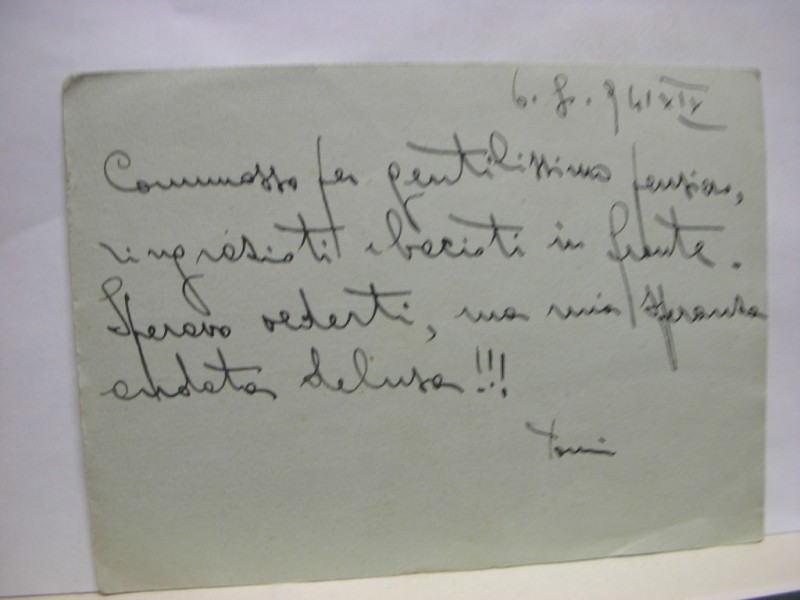 6. 8. 941 XIX
Commosso per gentilissimo pensiero,
ringraziati e bacioti in fronte.
Speravo vederti, ma mia speranza
andata delusa!!!